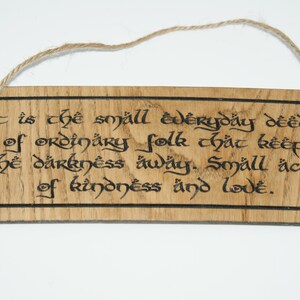 t is the small everyday dee
of ordinary folk that keep
he darkness away. Small ac
of kindness and love.